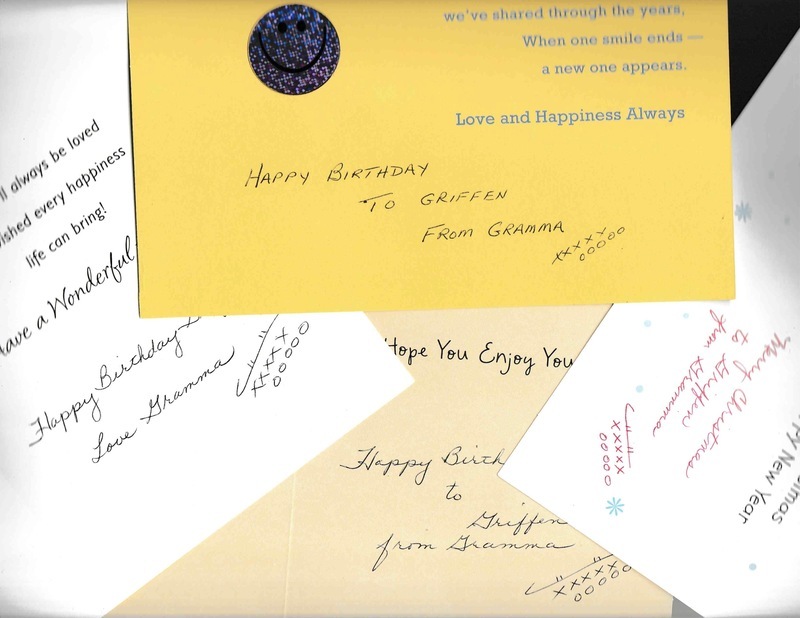 we've shared through the years,
When one smile ends —
a new one appears.
Love and Happiness Always
HAPPY BIRTHDAY
TO GRIFFEN
FROM GRAMMA
xxxxx
ooooo
always be loved
ished every happiness
life can bring!
ave a Wonderful
Happy Birthday
Love Gramma
xxxxx
ooooo
Hope You Enjoy You
Happy Birth
to
Griffen
from Gramma
xxxxx
ooooo
Merry Christmas
to Griffen
from Gramma
xxxxx
ooooo
New Year